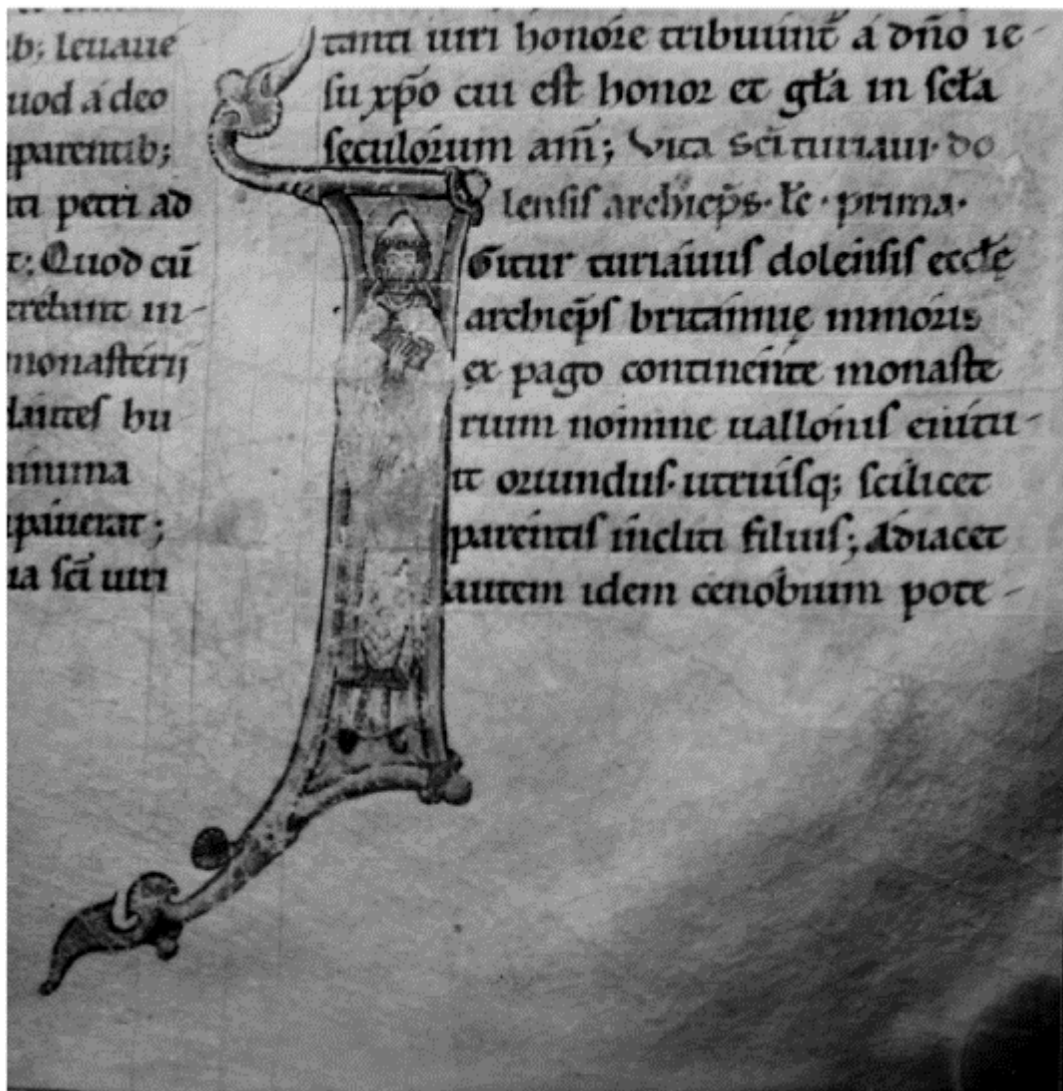 b; leuaue
uod a deo
parentib;
ti petri ad
t; Quod cū
erebant in-
monasterij
dantes hu-
minima
a sc̄i uiri
tanti uiri honore tribuunt̄ a dn̄o ie-
su xp̄o cui est honor et gl̄a in sc̄la
seculorum am̄; Vita sc̄i turiaui· do
lensis archiep̄s· lc̄· prima·
Gitur turiauus dolensis eccl̄ę
archiep̄s britannię minoris
ex pago continente monaste
rium nomine uallonis enitu-
it oriundus· utriusq; scilicet
parentis incliti filius; Adiacet
autem idem cenobium pote-